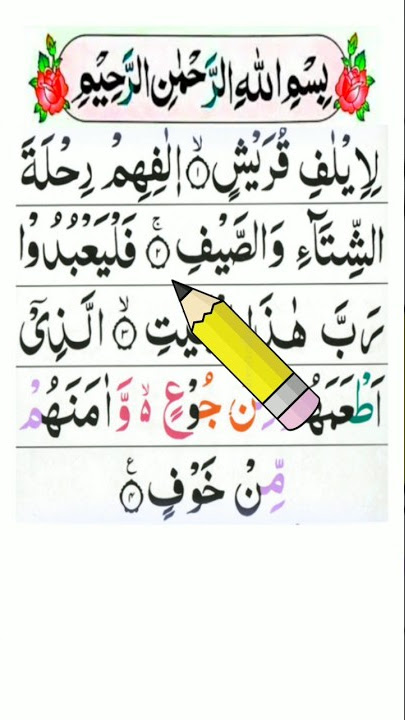 بِسْمِ اللهِ الرَّحْمٰنِ الرَّحِيْمِ
لِاِيْلٰفِ قُرَيْشٍ ۙ﴿۱﴾ اٖلٰفِهِمْ رِحْلَةَ
الشِّتَآءِ وَالصَّيْفِ ۚ﴿۲﴾ فَلْيَعْبُدُوْا
رَبَّ هٰذَا ﴿۳﴾ۙ الَّذِىْۤ
اَطْعَمَهُمْ جُوْعٍ ۙ۬ وَّاٰمَنَهُمْ
مِّنْ خَوْفٍ ﴿۴﴾ع